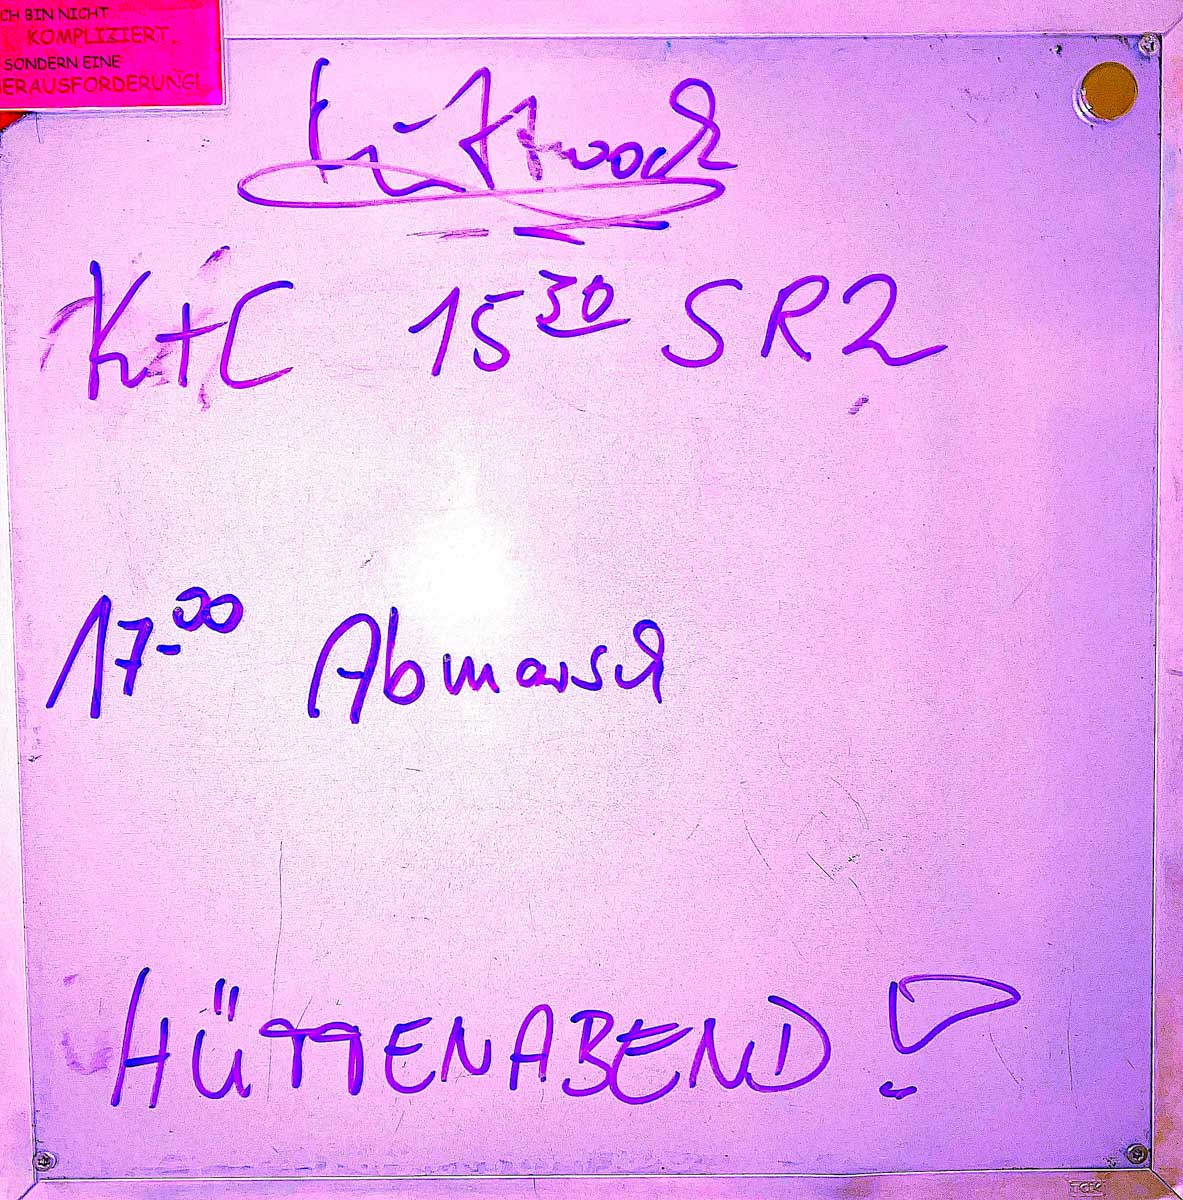 ICH BIN NICHT
KOMPLIZIERT,
SONDERN EINE
HERAUSFORDERUNG!
Mittwoch
K+C 15 30 SR2
17.00 Abmarsch
HÜTTENABEND!
TCK